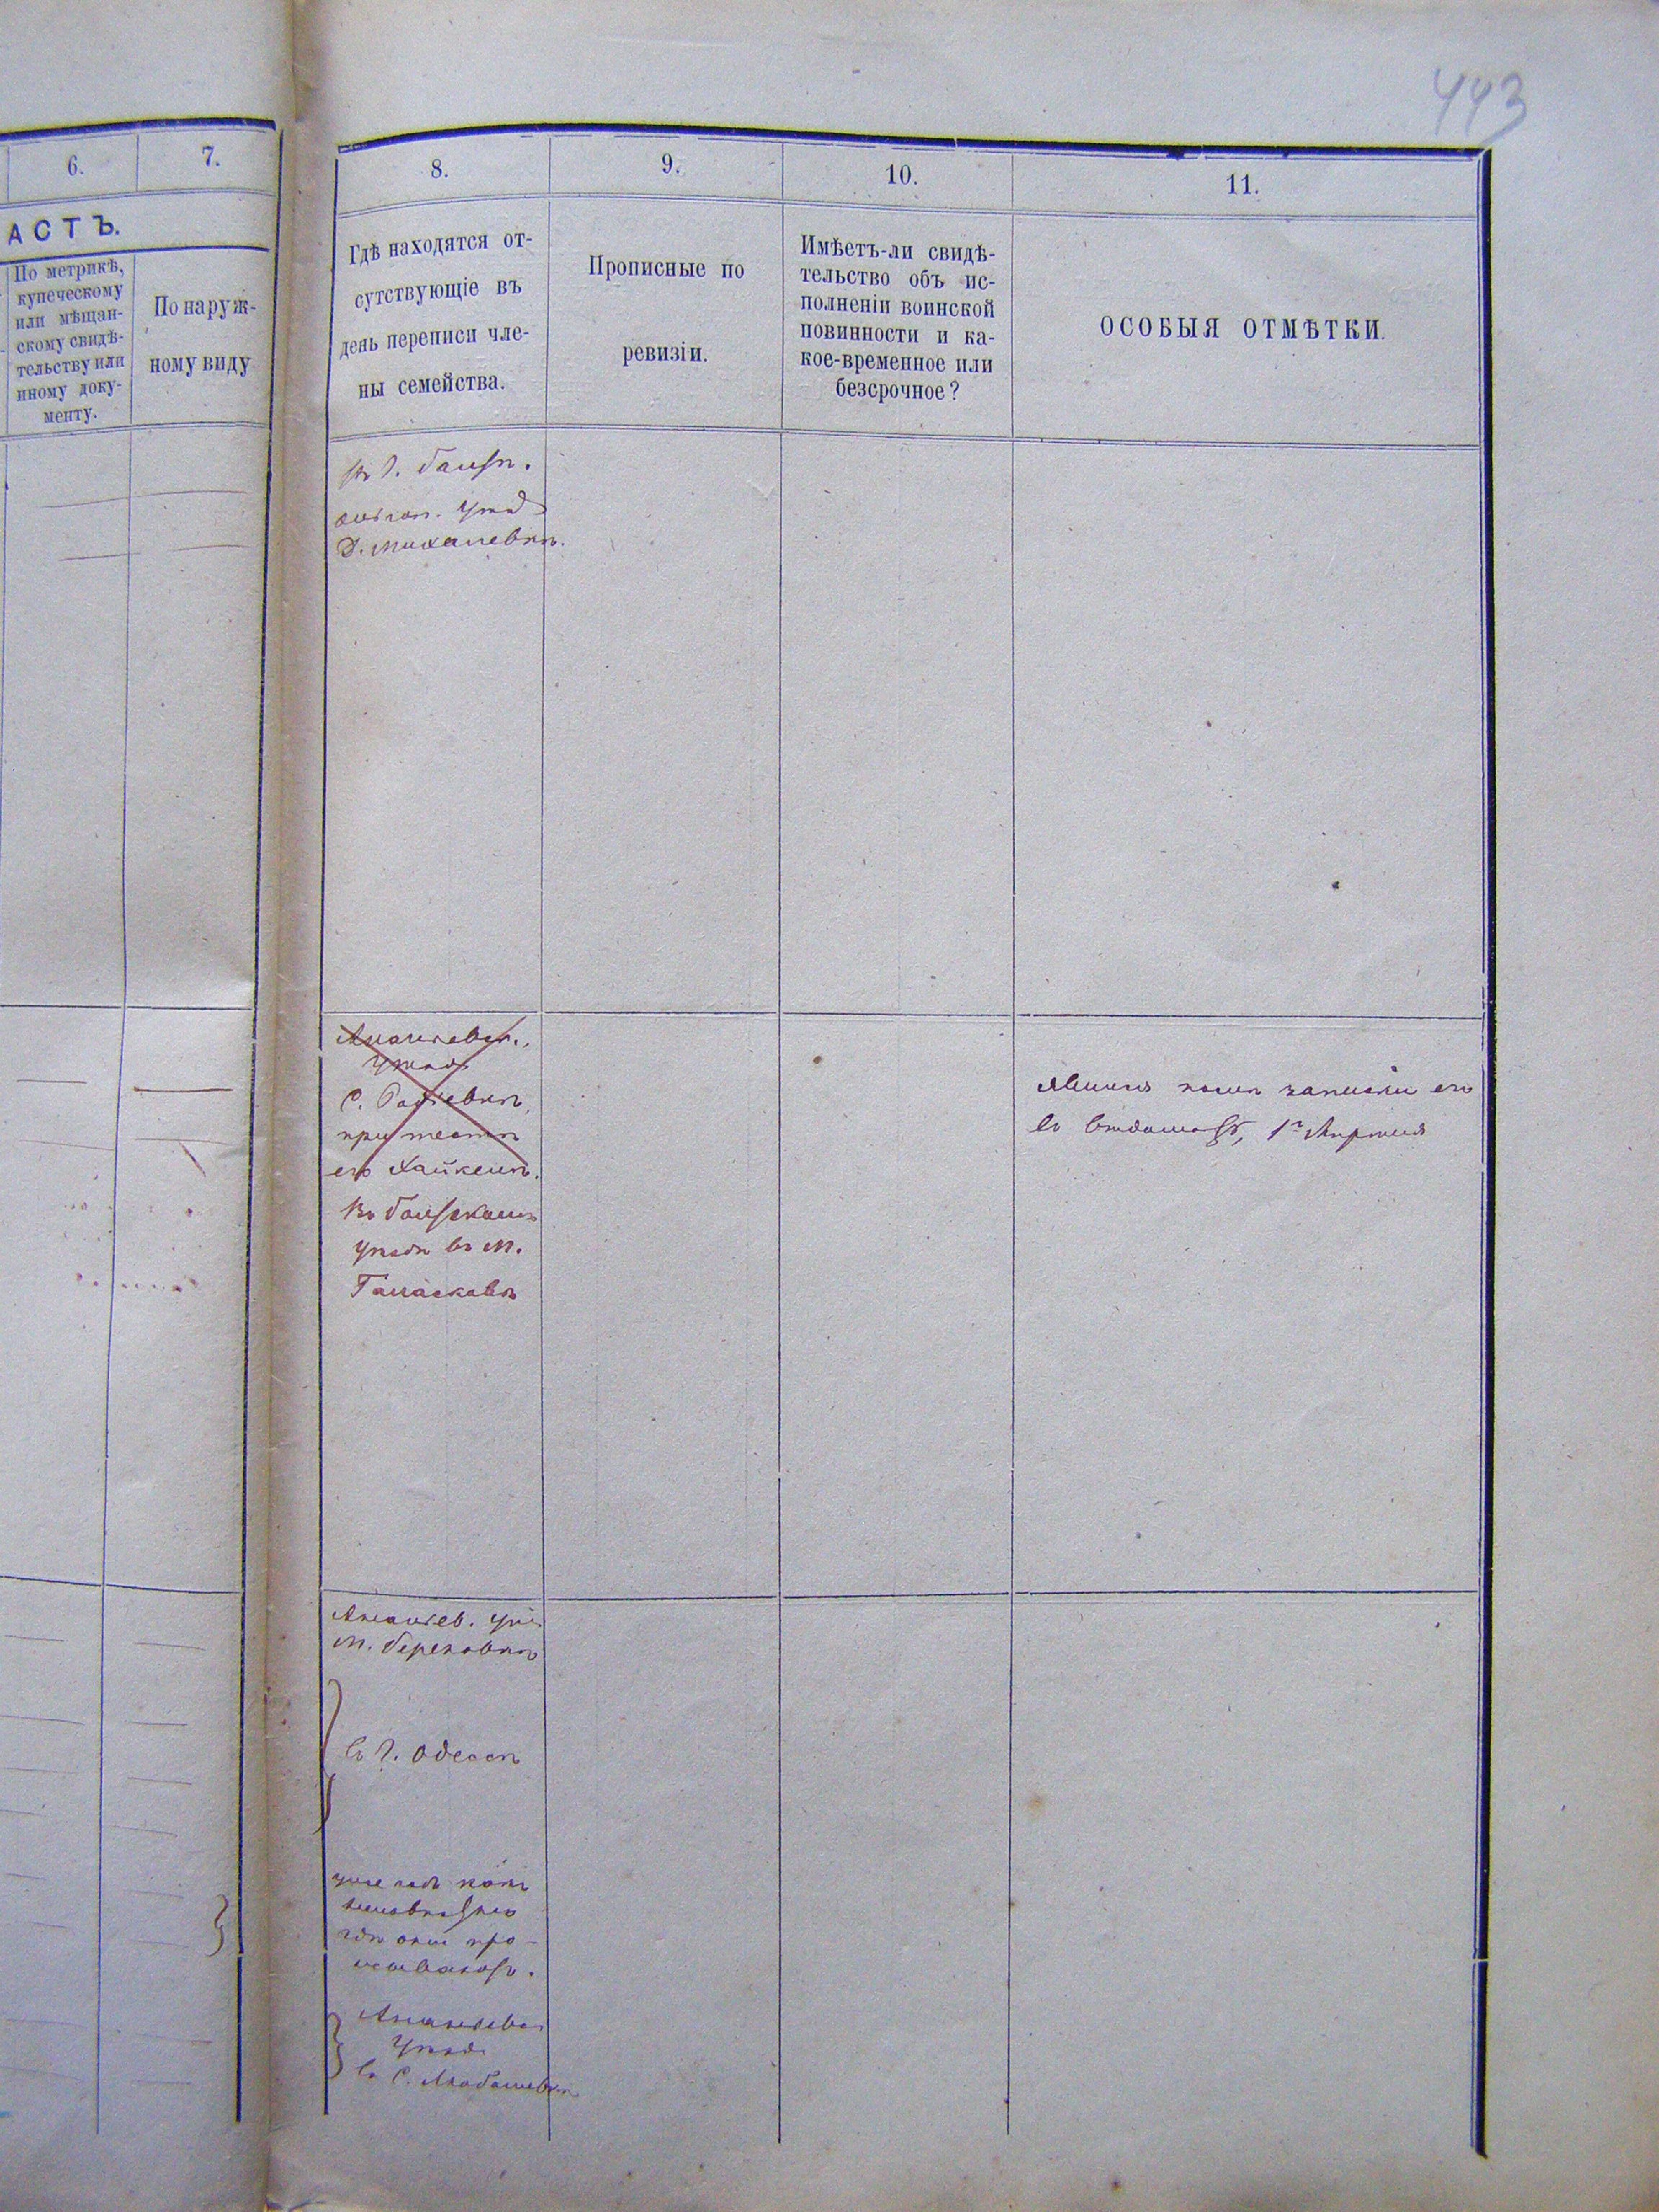 443
6.
7.
АСТЪ.
По метрикѣ,
купеческому
или мѣщан-
скому свидѣ-
тельству или
иному доку-
менту.
По наруж-
ному виду
8.
9.
10.
11.
Гдѣ находятся от-
сутствующіе въ
день переписи чле-
ны семейства.
Прописные по
ревизіи.
Имѣетъ-ли свидѣ-
тельство объ ис-
полненіи воинской
повинности и ка-
кое-временное или
безсрочное?
ОСОБЫЯ ОТМѢТКИ.
въ г. балтѣ.
ананьев. уѣзд
д. Михалевкѣ.
Ананьевск.
уѣзда
С.
при тестѣ
его Хайкелѣ.
въ балтскомъ
уѣздѣ въ м.
записки его
въ 1го
Ананьев. уѣз
м. березовкѣ
въ г. Одессѣ
гдѣ они про-
Ананьевск
уѣзда
въ С. Любашевкѣ